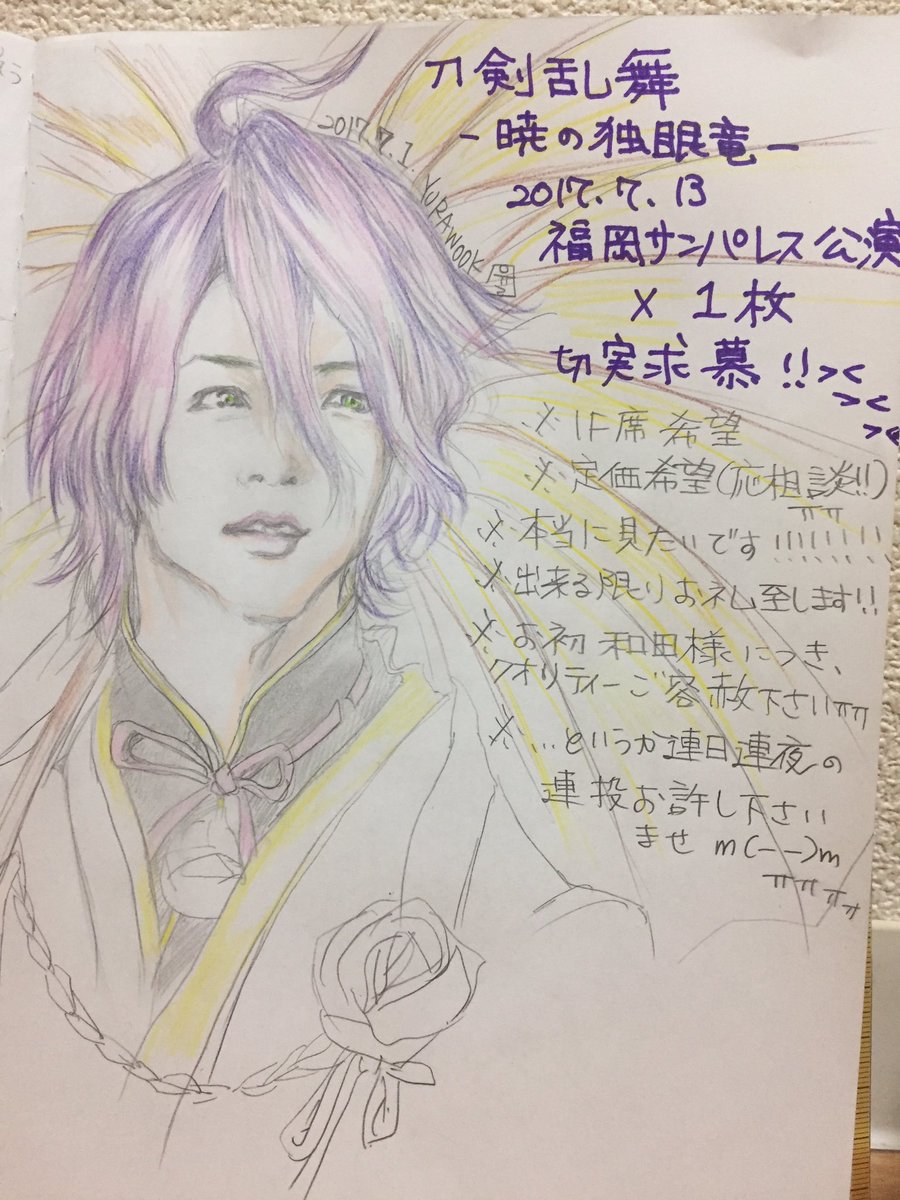 刀剣乱舞
-暁の独眼竜-
2017.7.13
福岡サンパレス公演
x 1枚
切実求慕!!><
><
><
※ 1F席希望
※ 定価希望(応相談!!)
ㅠㅠ
※ 本当に見たいです!!!!!!!
※ 出来る限りお礼至します!!
※ お初 和田様につき、
クオリティーご容赦下さいㅠㅠ
※ …というか連日連夜の
連投お許し下さい
ませ m(--)m
ㅠㅠㅠㅠ
2017.7.1.
YURAWOOK